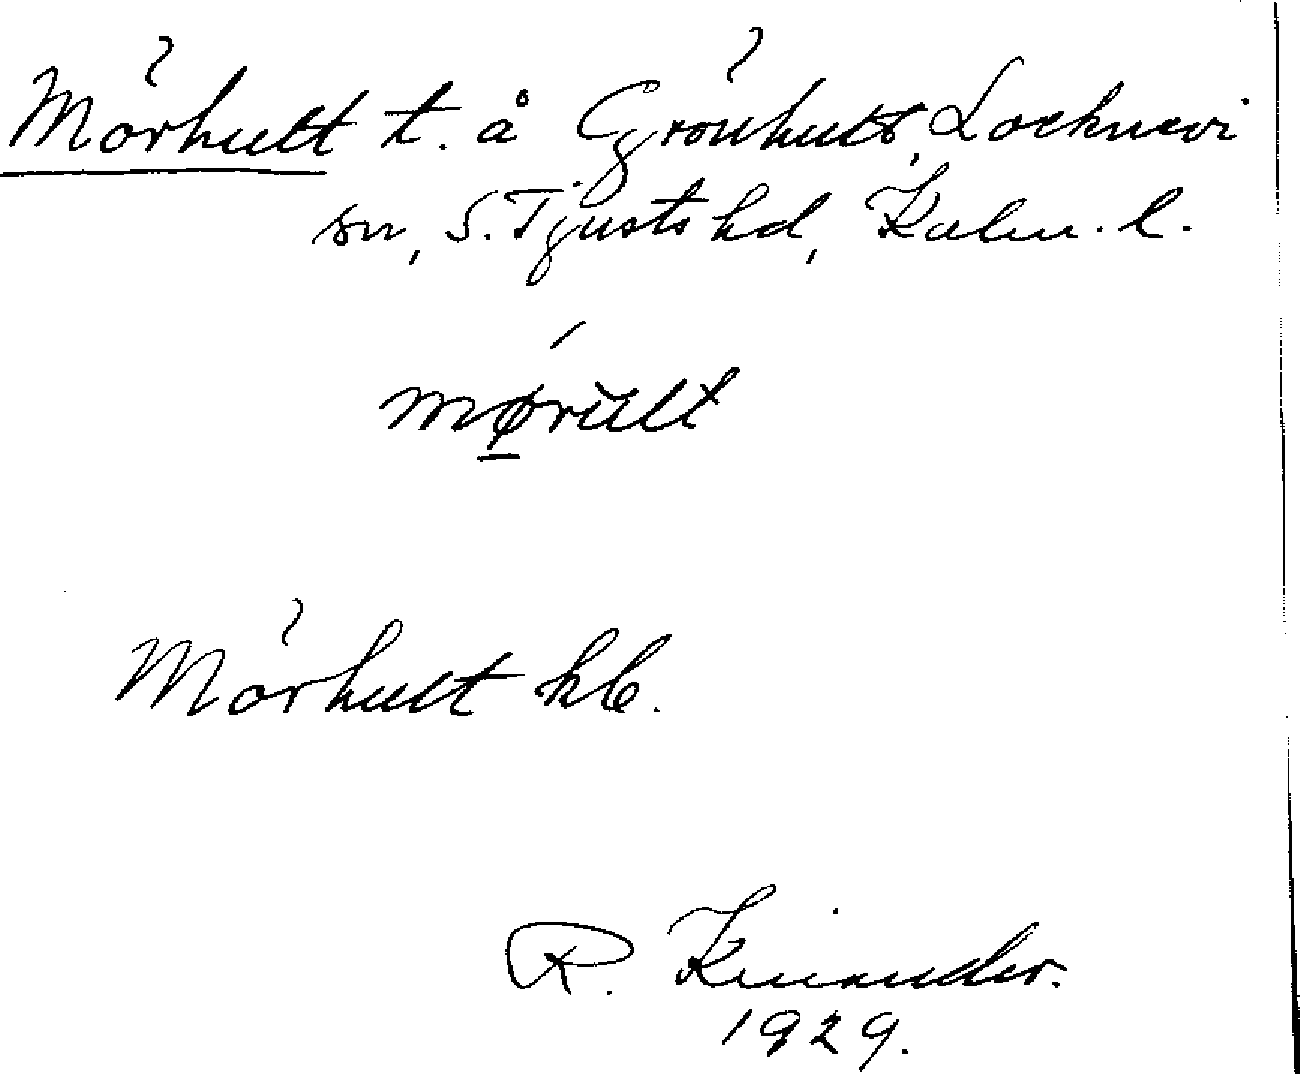 Mörhult t. å Grönhult, Locknevi
sn, S. Tjusts hd, Kalm. l.
mø̱rŭlt
Mörhult kb.
R. Kinander.
1929.